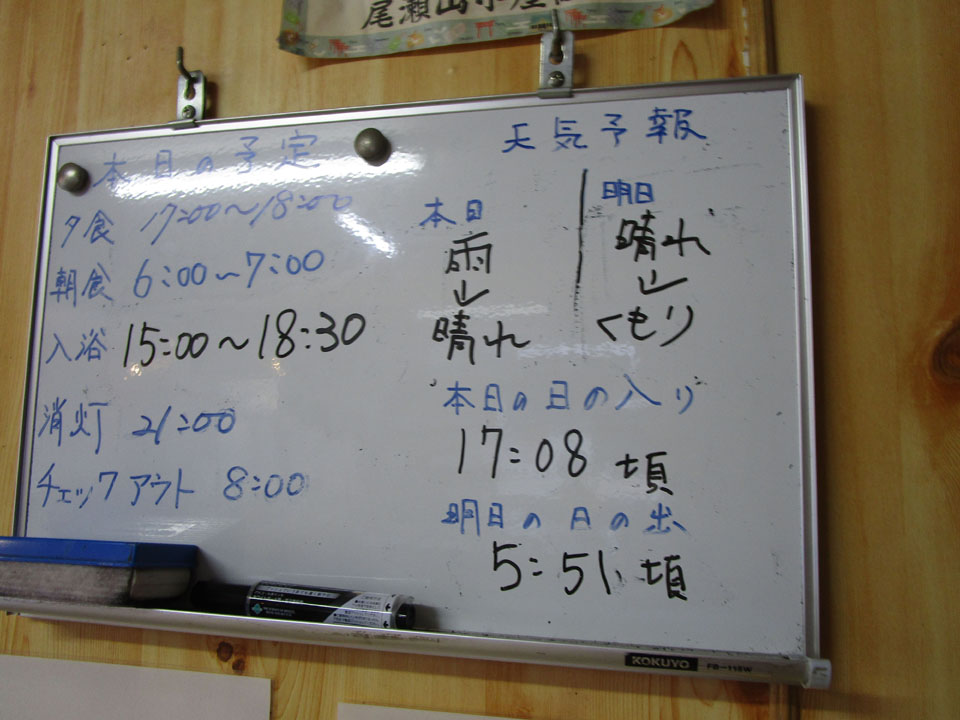 尾瀬山小屋
本日の予定
夕食 17:00～18:00
朝食 6:00～7:00
入浴 15:00～18:30
消灯 21:00
チェックアウト 8:00
天気予報
本日
雨
↓
晴れ
明日
晴れ
↓
くもり
本日の日の入り
17:08 頃
明日の日の出
5:51 頃
KOKUYO FB-115W